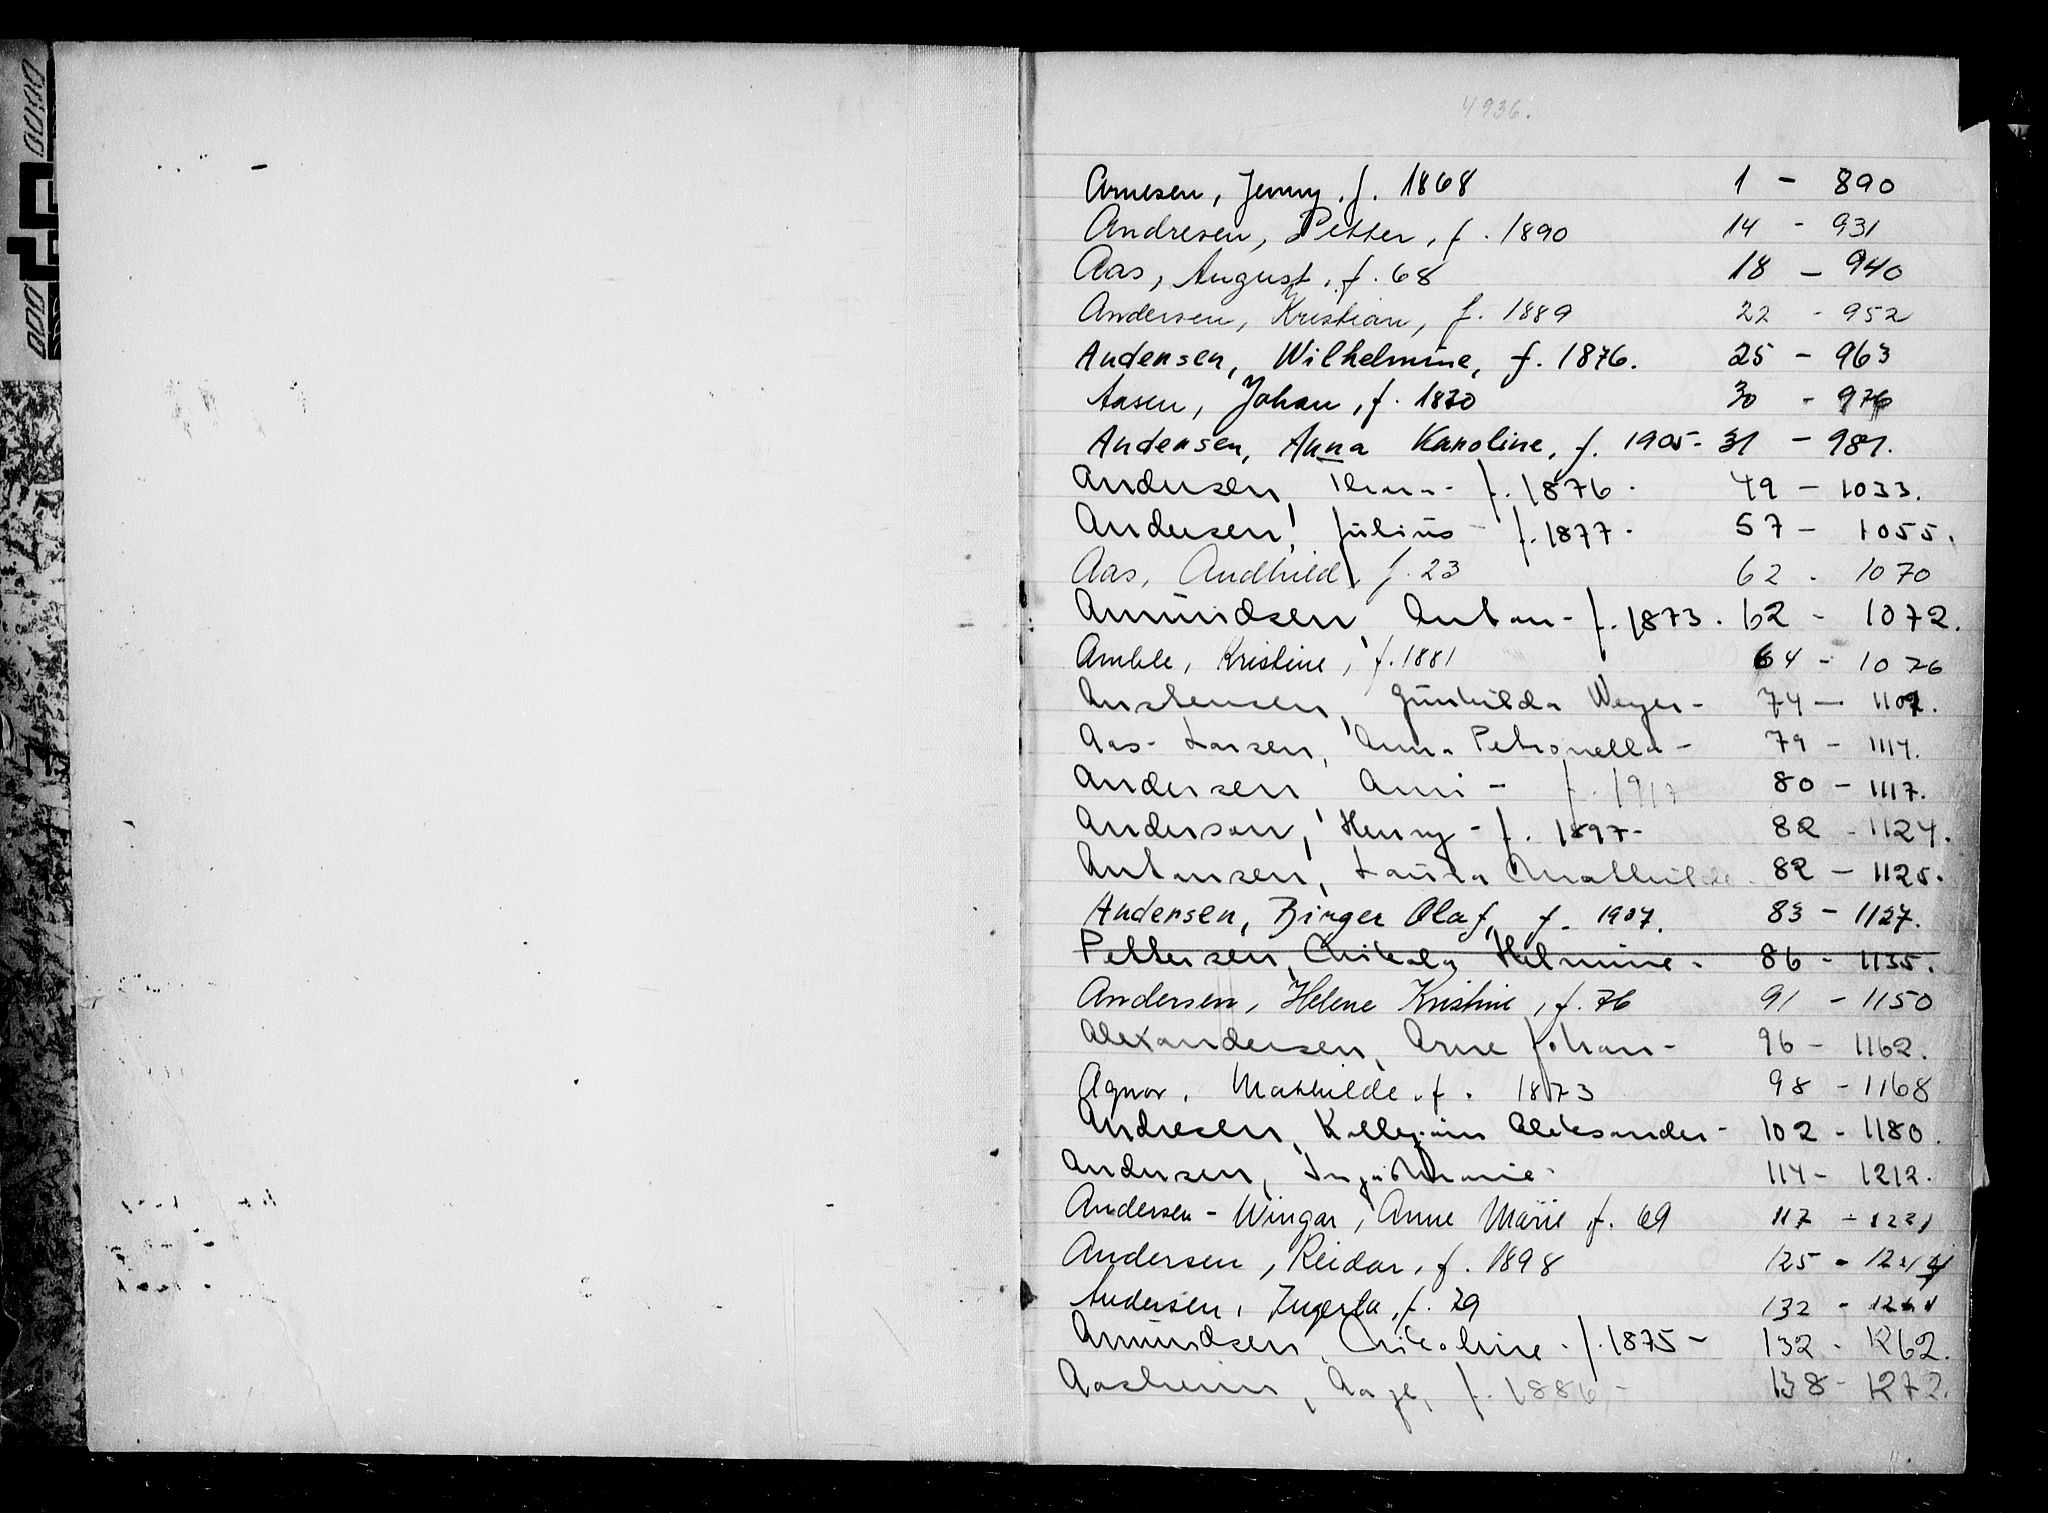 4936.
Arnesen, Jenny, f. 1868 1 - 890
Andresen, Petter, f. 1890 14 - 931
Aas, August, f. 68 18 - 940
Andersen, Kristian, f. 1889 22 - 952
Andersen, Wilhelmine, f. 1876. 25 - 963
Aasen, Johan, f. 1870 30 - 976
Andersen, Anna Karoline, f. 1905 - 31 - 981.
Andersen, f. 1876. 49 - 1033.
Andersen, Julius - f. 1877. 57 - 1055.
Aas, Audhild, f. 23 62 - 1070
Amundsen, Anton - f. 1873. 62 - 1072.
Amble, Kristine, f. 1881 64 - 1076
Austensen, Gunhilda Weyer - 74 - 1102.
Aas-Larsen, Anna Petronella - 79 - 1114.
Andersen Ani - f. 1917 80 - 1117.
Anderson, Henry - f. 1897 - 82 - 1124.
Antonsen, Laura Mathilde 82 - 1125.
Andersen, Birger Olaf, f. 1907. 83 - 1127.
Pettersen, Nikola Helmine. 86 - 1135.
Andersen, Helene Kristine, f. 76 91 - 1150
Alexandersen, Arne Johan - 96 - 1162.
Agnor, Mathilde, f. 1873 98 - 1168
Andresen, Aleksander - 102 - 1180.
Andersen, Inga Marie - 114 - 1212.
Andersen - Wingar, Anne Marie f. 69 117 - 1221
Andersen, Reidar, f. 1898 125 -
Andersen, Ingerta, f. 79 132 - 1261
Amundsen, Nikoline - f. 1875 - 132 - 1262.
Aasheim, Aage, f. 1886 - 138 - 1272.